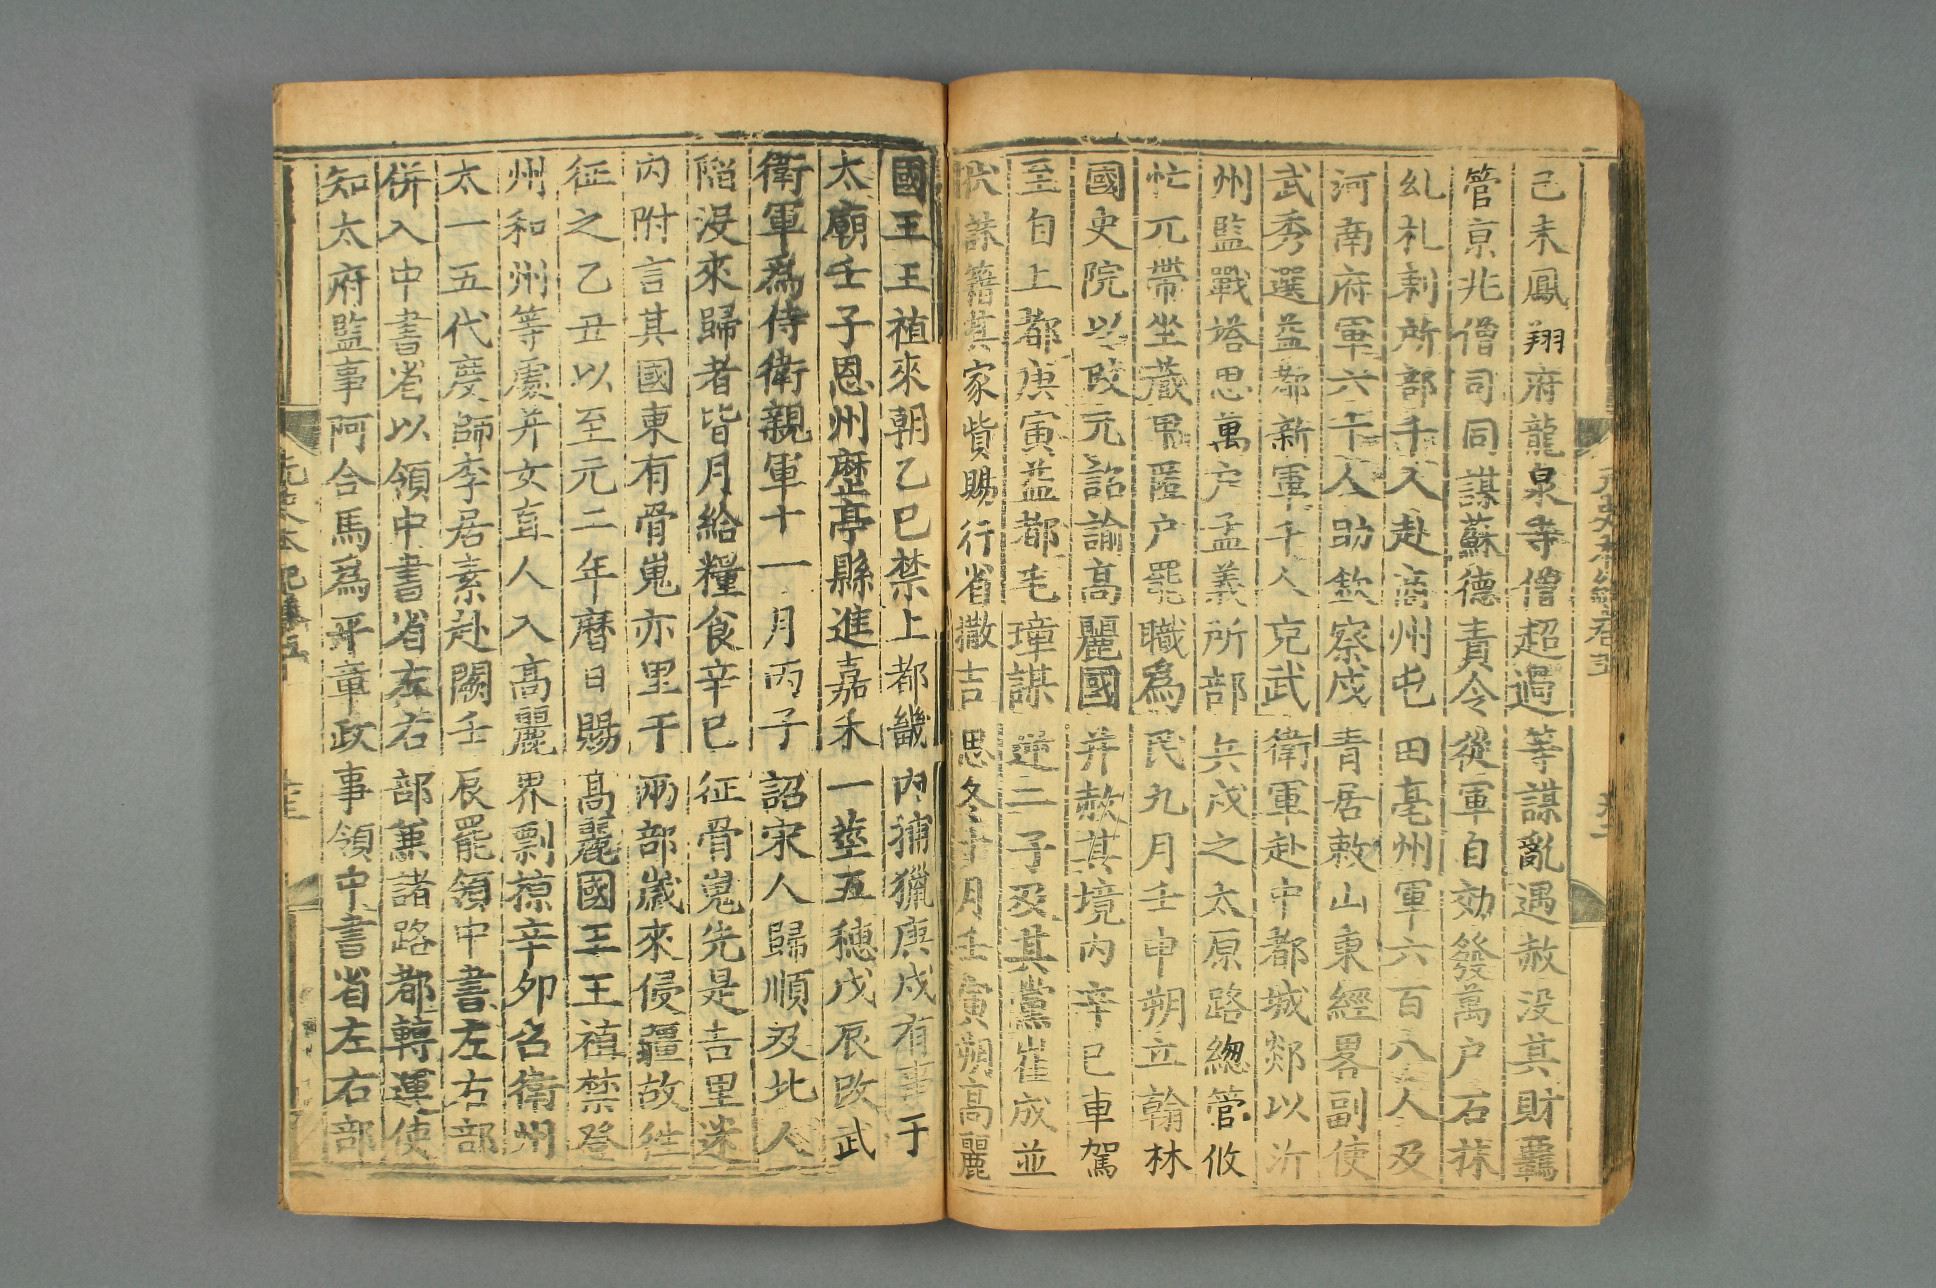 己未鳳翔府龍泉寺僧超過等謀亂遇赦没其財羈
管京兆僧司同謀蘇德責令從軍自効發萬户石抹
乣札剌所部千人赴商州屯田亳州軍六百八人及
河南府軍六千人助欽察戍青居敕山東經畧副使
武秀選益都新軍千人充武衛軍赴中都城郯以沂
州監戰塔思萬户孟義所部兵戍之太原路緫管攸
忙兀帶坐藏甲匿户罷職爲民九月壬申朔立翰林
國史院以改元詔諭高麗國并赦其境内辛巳車駕
至自上都庚寅益都毛璋謀逆二子及其黨崔成並
伏誅籍其家貲賜行省撒吉思冬十月壬寅朔高麗
國王王禃來朝乙巳禁上都畿内捕獵庚戌有事于
太廟壬子恩州歷亭縣進嘉禾一莖五穗戊辰改武
衛軍爲侍衛親軍十一月丙子詔宋人歸順及北人
陷没來歸者皆月給糧食辛巳征骨嵬先是吉里迷
内附言其國東有骨嵬亦里于兩部歲來侵疆故往
征之乙丑以至元二年曆日賜高麗國王王禃禁登
州和州等處并女直人入高麗界剽掠辛卯召衛州
太一五代度師李居素赴闕壬辰罷領中書左右部
併入中書省以領中書省左右部兼諸路都轉運使
知太府監事阿合馬爲平章政事領中書省左右部